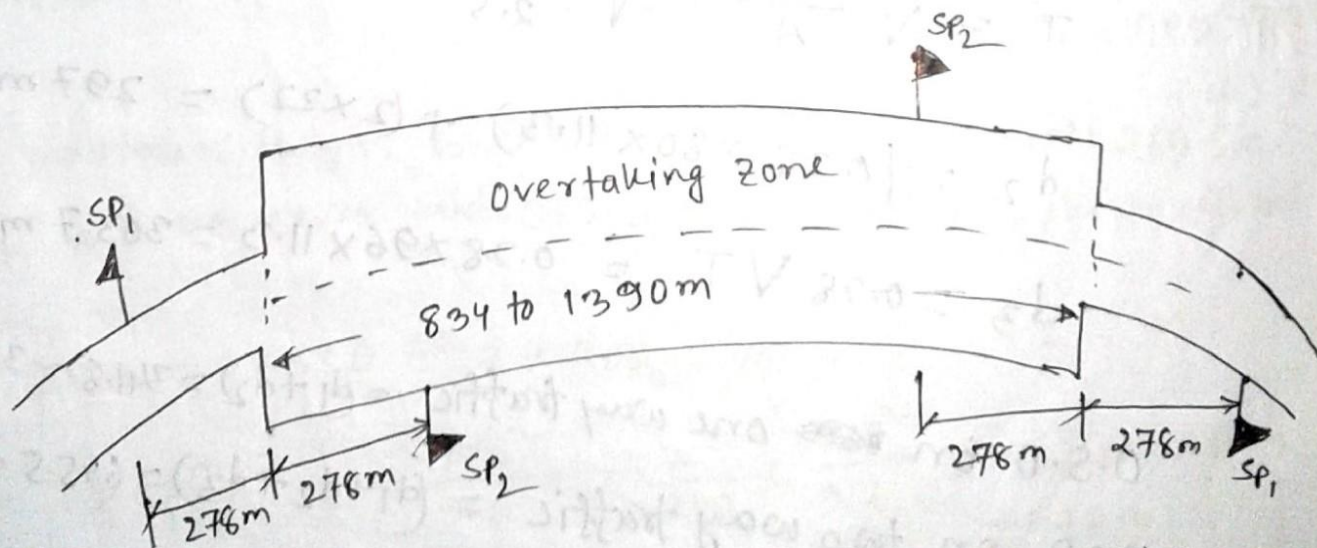 SP2
overtaking zone
SP1
834 to 1390m
278m
278m
SP2
278m
278m
SP1